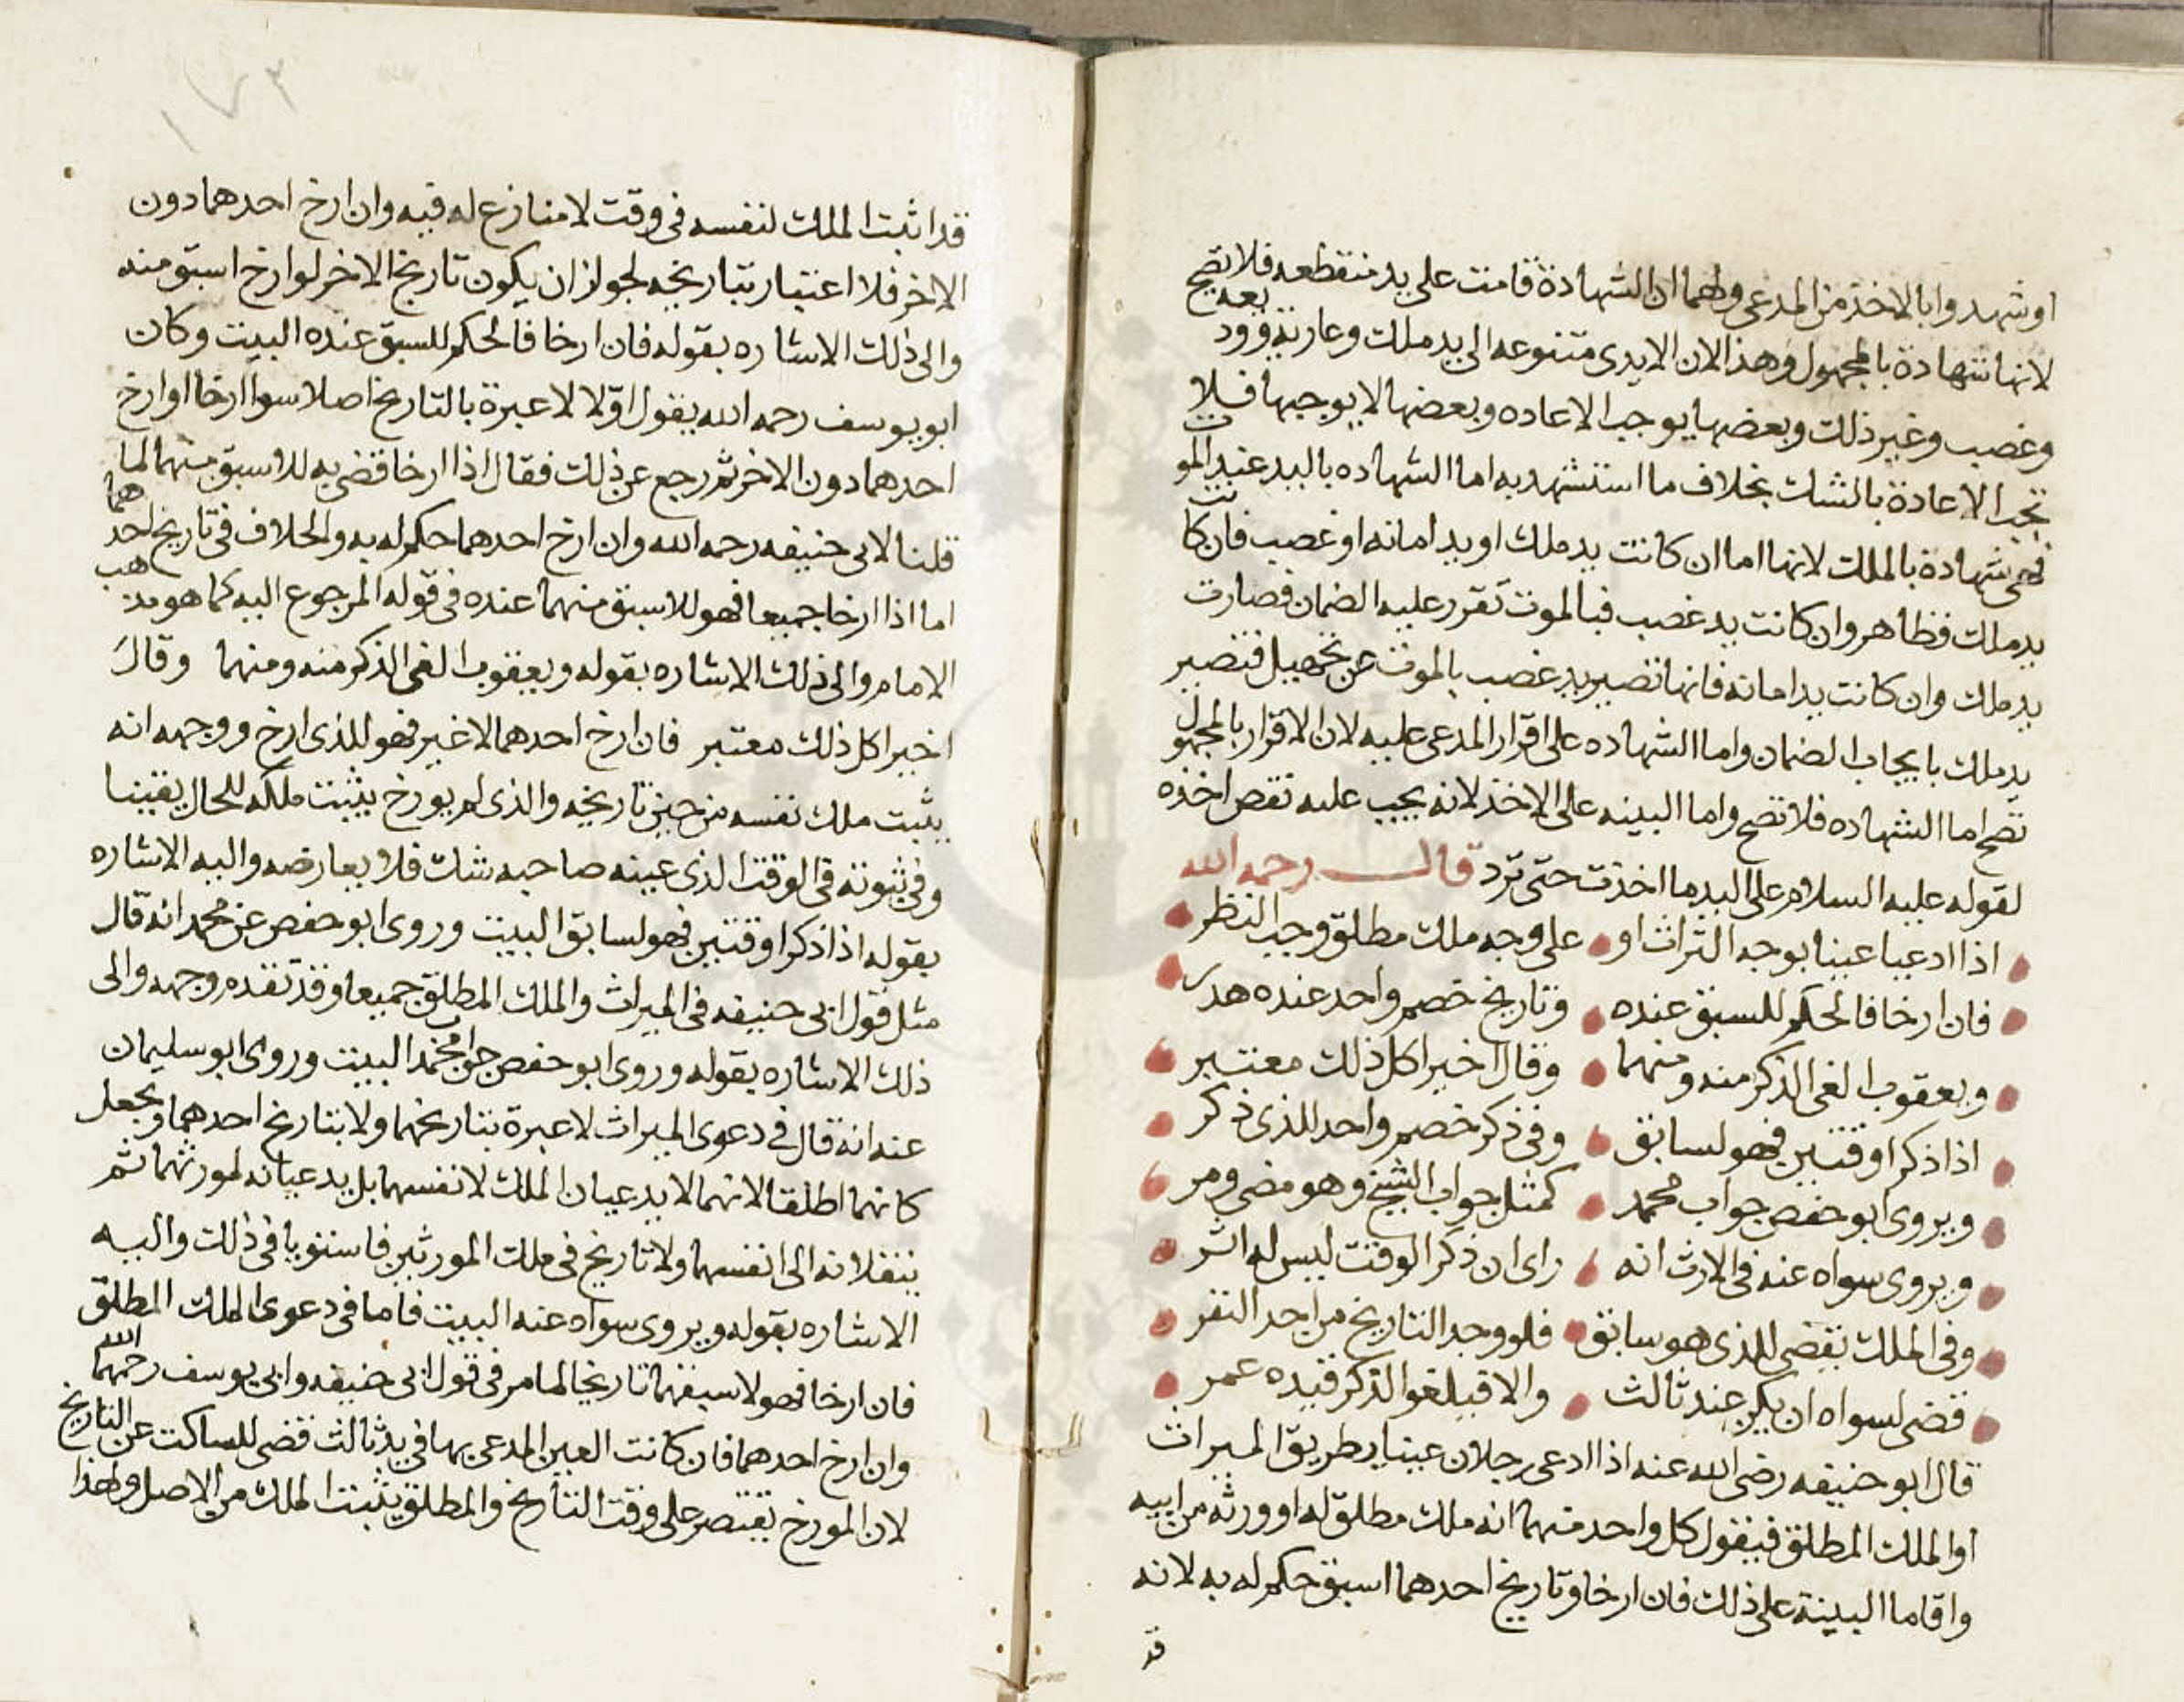 اوشهدوا بالاخذ من المدعى ولهما ان الشهادة قامت على يد منقطعه فلا تصح
لانها شهادة بالمجهول وهذا لان الايدى متنوعه الى يد ملك وعارية وود يعه
وغصب وغير ذلك وبعضها يوجب الاعاده وبعضها لا يوجبها فلا
تجب الاعادة بالشك بخلاف ما استشهد به اما الشهاده باليد عند الموت
فهى شهادة بالملك لانها اما ان كانت يد ملك او يد امانه او غصب فان كانت
يد ملك فظاهر وان كانت يد غصب فبالموت تقرر عليه الضمان فصارت
يد ملك وان كانت يد امانه فانها تصير يد غصب بالموت عن تجهيل فتصير
يد ملك بايجاب الضمان واما الشهاده على اقرار المدعى عليه لان الاقرار بالمجهول
تصح اما الشهاده فلا تصح واما البينه على الاخذ لانه يجب عليه نقض اخذه
لقوله عليه السلام على اليد ما اخذت حتى ترد قال رحمه الله
اذا ادعيا عينا بوجه التراث او على وجه ملك مطلق وجب النظر
فان ارخا فالحكم للسبق عنده وتاريخ خصم واحد عنده هدر
ويعقوب الغى الذكر منه ومنهما وقال اخيرا كل ذلك معتبر
اذا ذكرا وقتين فهو لسابق وفى ذكر خصم واحد للذى ذكر
ويروى ابو حفص جواب محمد كمثل جواب الشيخ وهو مضى ومر
ويروى سواه عنه فى الارث انه راى ان ذكر الوقت ليس له اثر
وفى الملك نقضى للذى هو سابق فلو وجد التاريخ من احد النفر
قضى لسواه ان يكن عند ثالث والا فيلغو الذكر قيده عمر
قال ابو حنيفه رضى الله عنه اذا ادعى رجلان عينا بطريق الميراث
او الملك المطلق فيقول كل واحد منهما انه ملك مطلق له او ورثه من ابيه
واقاما البينة على ذلك فان ارخا وتاريخ احدهما اسبق حكم له به لانه
قد
١٧٣
قد اثبت الملك لنفسه فى وقت لا منازع له فيه وان ارخ احدهما دون
الاخر فلا اعتبار بتاريخه لجواز ان يكون تاريخ الاخر لو ارخ اسبق منه
والى ذلك الاشاره بقوله فان ارخا فالحكم للسبق عنده البيت وكان
ابو يوسف رحمه الله يقول اوّلا لا عبرة بالتاريخ اصلا سوا ارخا او ارخ
احدهما دون الاخر ثم رجع عن ذلك فقال اذا ارخا قضى به للاسبق منهما لما
قلنا لابى حنيفه رحمه الله وان ارخ احدهما حكم له به والخلاف فى تاريخ احدهما
اما اذا ارخا جميعا فهو للاسبق منهما عنده فى قوله المرجوع اليه كما هو مذهب
الامام والى ذلك الاشاره بقوله ويعقوب الغى الذكر منه ومنهما وقال
اخيرا كل ذلك معتبر فان ارخ احدهما لا غير فهو للذى ارخ ووجهه انه
يثبت ملك نفسه من حين تاريخه والذى لم يورخ يثبت ملكه للحال يقينا
وفى ثبوته فى الوقت الذى عينه صاحبه شك فلا يعارضه واليه الاشاره
بقوله اذا ذكرا وقتين فهو لسابق البيت وروى ابو حفص عن محمد انه قال
مثل قول ابى حنيفه فى الميراث والملك المطلق جميعا وقد تقدم وجهه والى
ذلك الاشاره بقوله وروى ابو حفص جواب محمد البيت وروى ابو سليمان
عنه انه قال فى دعوى الميراث لا عبرة بتاريخهما ولا بتاريخ احدهما ويجعل
كانهما اطلقا لانهما لا يدعيان الملك لانفسهما بل يدعيانه لمورثهما ثم
ينقلانه الى انفسهما ولا تاريخ فى ملك المورثين فاستويا فى ذلك واليه
الاشاره بقوله ويروى سواه عنه البيت فاما فى دعوى الملك المطلق
فان ارخا فهو لاسبقهما تاريخا لما مر فى قول ابى حنيفه وابى يوسف رحمهما الله
وان ارخ احدهما فان كانت العين المدعى بها فى يد ثالث قضى للساكت عن التاريخ
لان المورخ يقتصر على وقت التاريخ والمطلق يثبت الملك من الاصل ولهذا